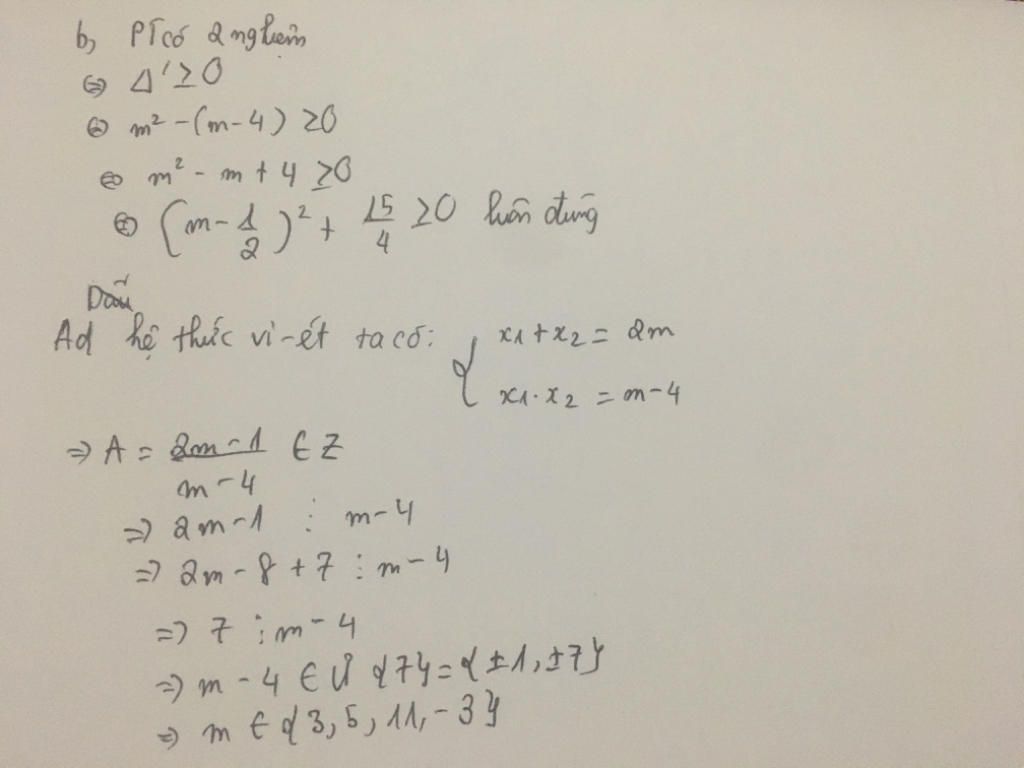 b, PT có 2 nghiệm
⇔ Δ' ≥ 0
⇔ m² - (m - 4) ≥ 0
⇔ m² - m + 4 ≥ 0
⇔ (m - 1/2)² + 15/4 ≥ 0 luôn đúng
Dấu
Ad hệ thức vi-ét ta có: { x1 + x2 = 2m
x1 . x2 = m - 4
⇒ A = (2m - 1)/(m - 4) ∈ Z
⇒ 2m - 1 ⋮ m - 4
⇒ 2m - 8 + 7 ⋮ m - 4
⇒ 7 ⋮ m - 4
⇒ m - 4 ∈ Ư {7} = {±1, ±7}
⇒ m ∈ {3, 5, 11, -3}